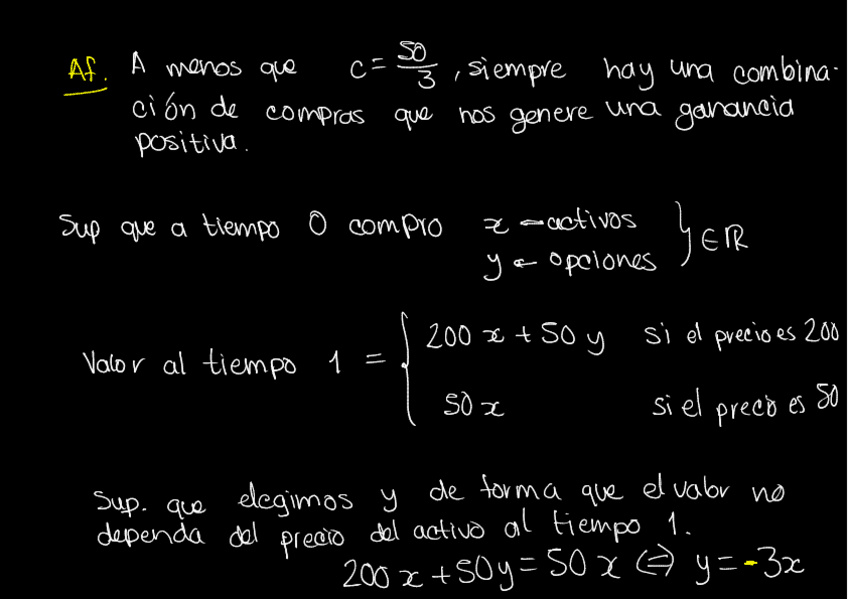 Af. A menos que c = 50/3, siempre hay una combina-
ción de compras que nos genere una ganancia
positiva.
Sup que a tiempo 0 compro x ← activos
y ← opciones } ∈ ℝ
Valor al tiempo 1 = { 200x + 50y si el precio es 200
50x si el precio es 50
Sup. que elegimos y de forma que el valor no
dependa del precio del activo al tiempo 1.
200x + 50y = 50x ⇔ y = -3x